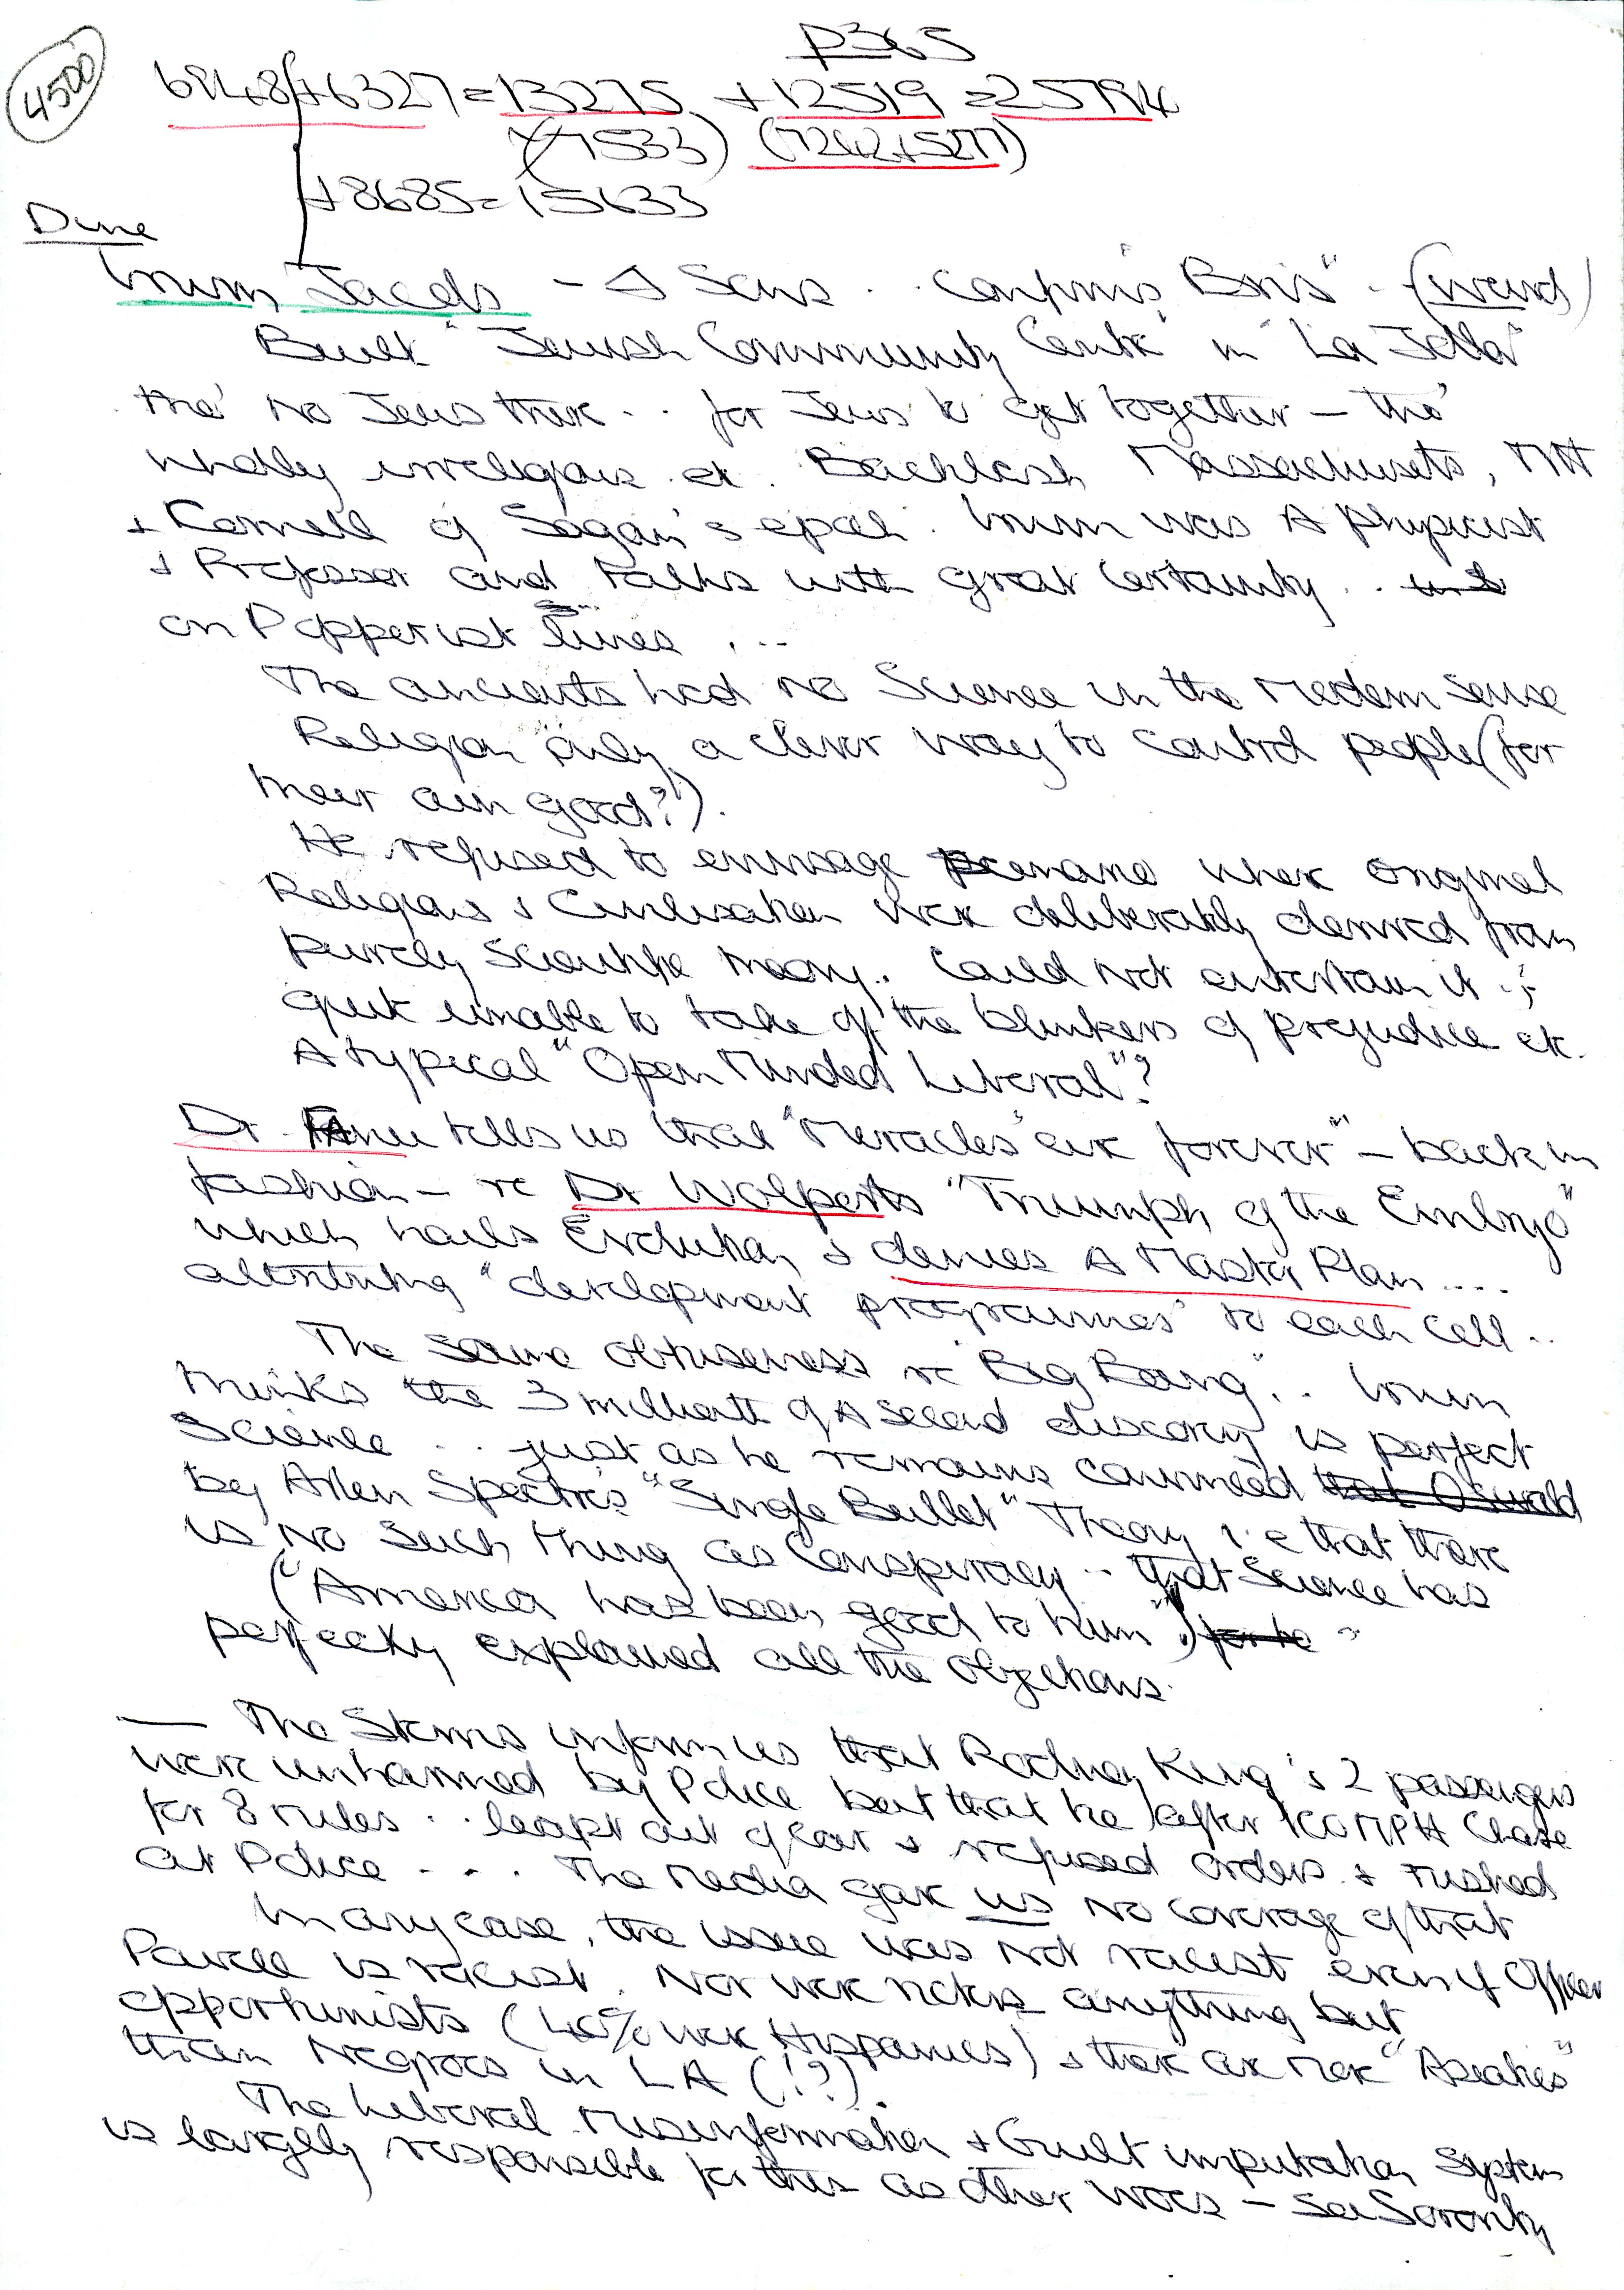 4500
p365
6948+6327=13275 +12519 =25794
(7533) (7242+5277)
+8685=15633
Dune
Irwin Jacobs - Sens .. Confirms "Bris" - (weird)
Built "Jewish Community Centre" in "La Jolla"
tho' no Jews there .. for Jews to get together - tho'
wholly irreligious etc. Massachusets, MIT
+ Cornell of Sagan's epoch. Irwin was A physicist
+ Professor and talks with great certainty ..
on Popperist lines ...
The ancients had no Science in the Modern sense
Religion only a clever way to control people (for
their own good?').
He refused to envisage scenario where original
Religions & Civilisation were deliberately derived from
purely scientific theory. Could not entertain it ..;
quite unable to take off the blinkers of prejudice etc.
A typical "Open Minded Liberal"?
Dr. tells us that "Miracles are forever" - back in
fashion - re Dr Wolperts "Triumph of the Embryo"
which hails Evolution & denies A Master Plan ....
attributing "development programmes" to each cell ..
The same obtuseness re "Big Bang" .. Irwin
thinks the 3 millionth of A second discovery is perfect
Science .. just as he remains convinced that Oswald
by Arlen Specter's "Single Bullet" Theory i.e that there
is no such thing as Conspiracy .. that Science has
("America has been good to him") for he
perfectly explained all the objections.
— The Sterns inform us that Rodney King's 2 passengers
were unharmed by Police but that he after 100MPH Chase
for 8 miles .. leapt out of car & refused orders & rushed
at Police - - . The Media gave us no coverage of that
In any case, the issue was not racist even if Officer
Powell is racist. Nor were rioters anything but
opportunists (40% were Hispanics) & there are More "Asiatics"
than Negroes in LA (!?).
The Liberal Misinformation & Guilt imputation System
is largely responsible for this as other woes -